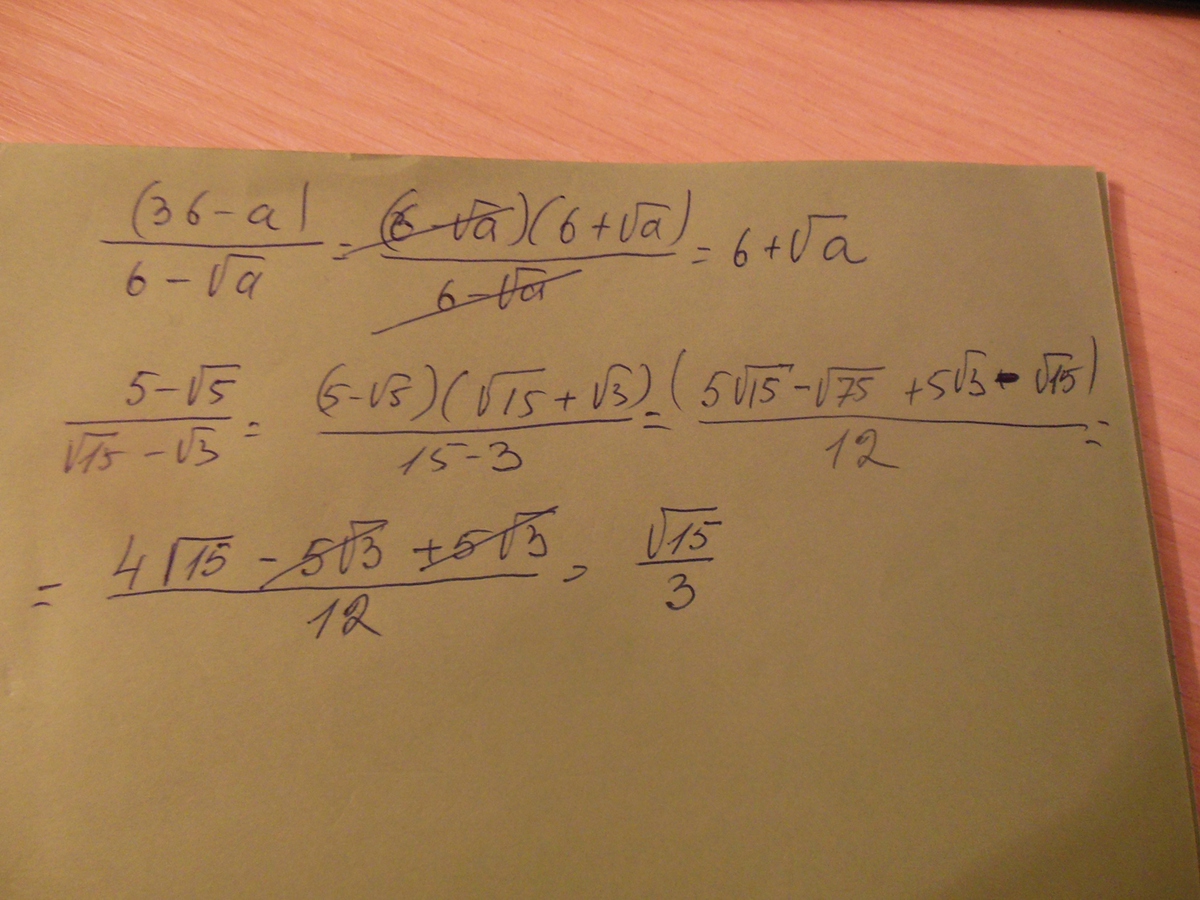 (36-a) / (6-√a) = (6-√a)(6+√a) / (6-√a) = 6+√a
(5-√5) / (√15-√3) = (5-√5)(√15+√3) / (15-3) = (5√15-√75+5√3-√15) / 12 =
= (4√15-5√3+5√3) / 12 = √15 / 3